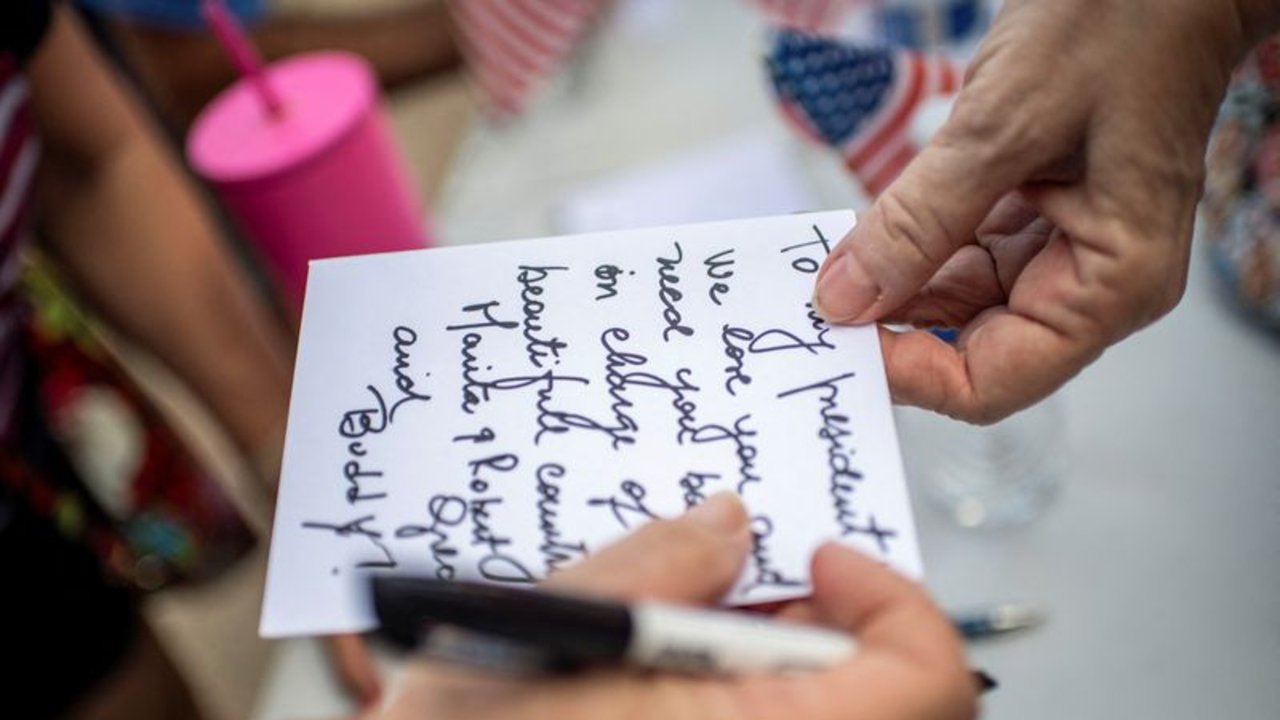 To my president
We love you and
need you
in charge of
beautifull
Manita & Robert
and
Buddy!